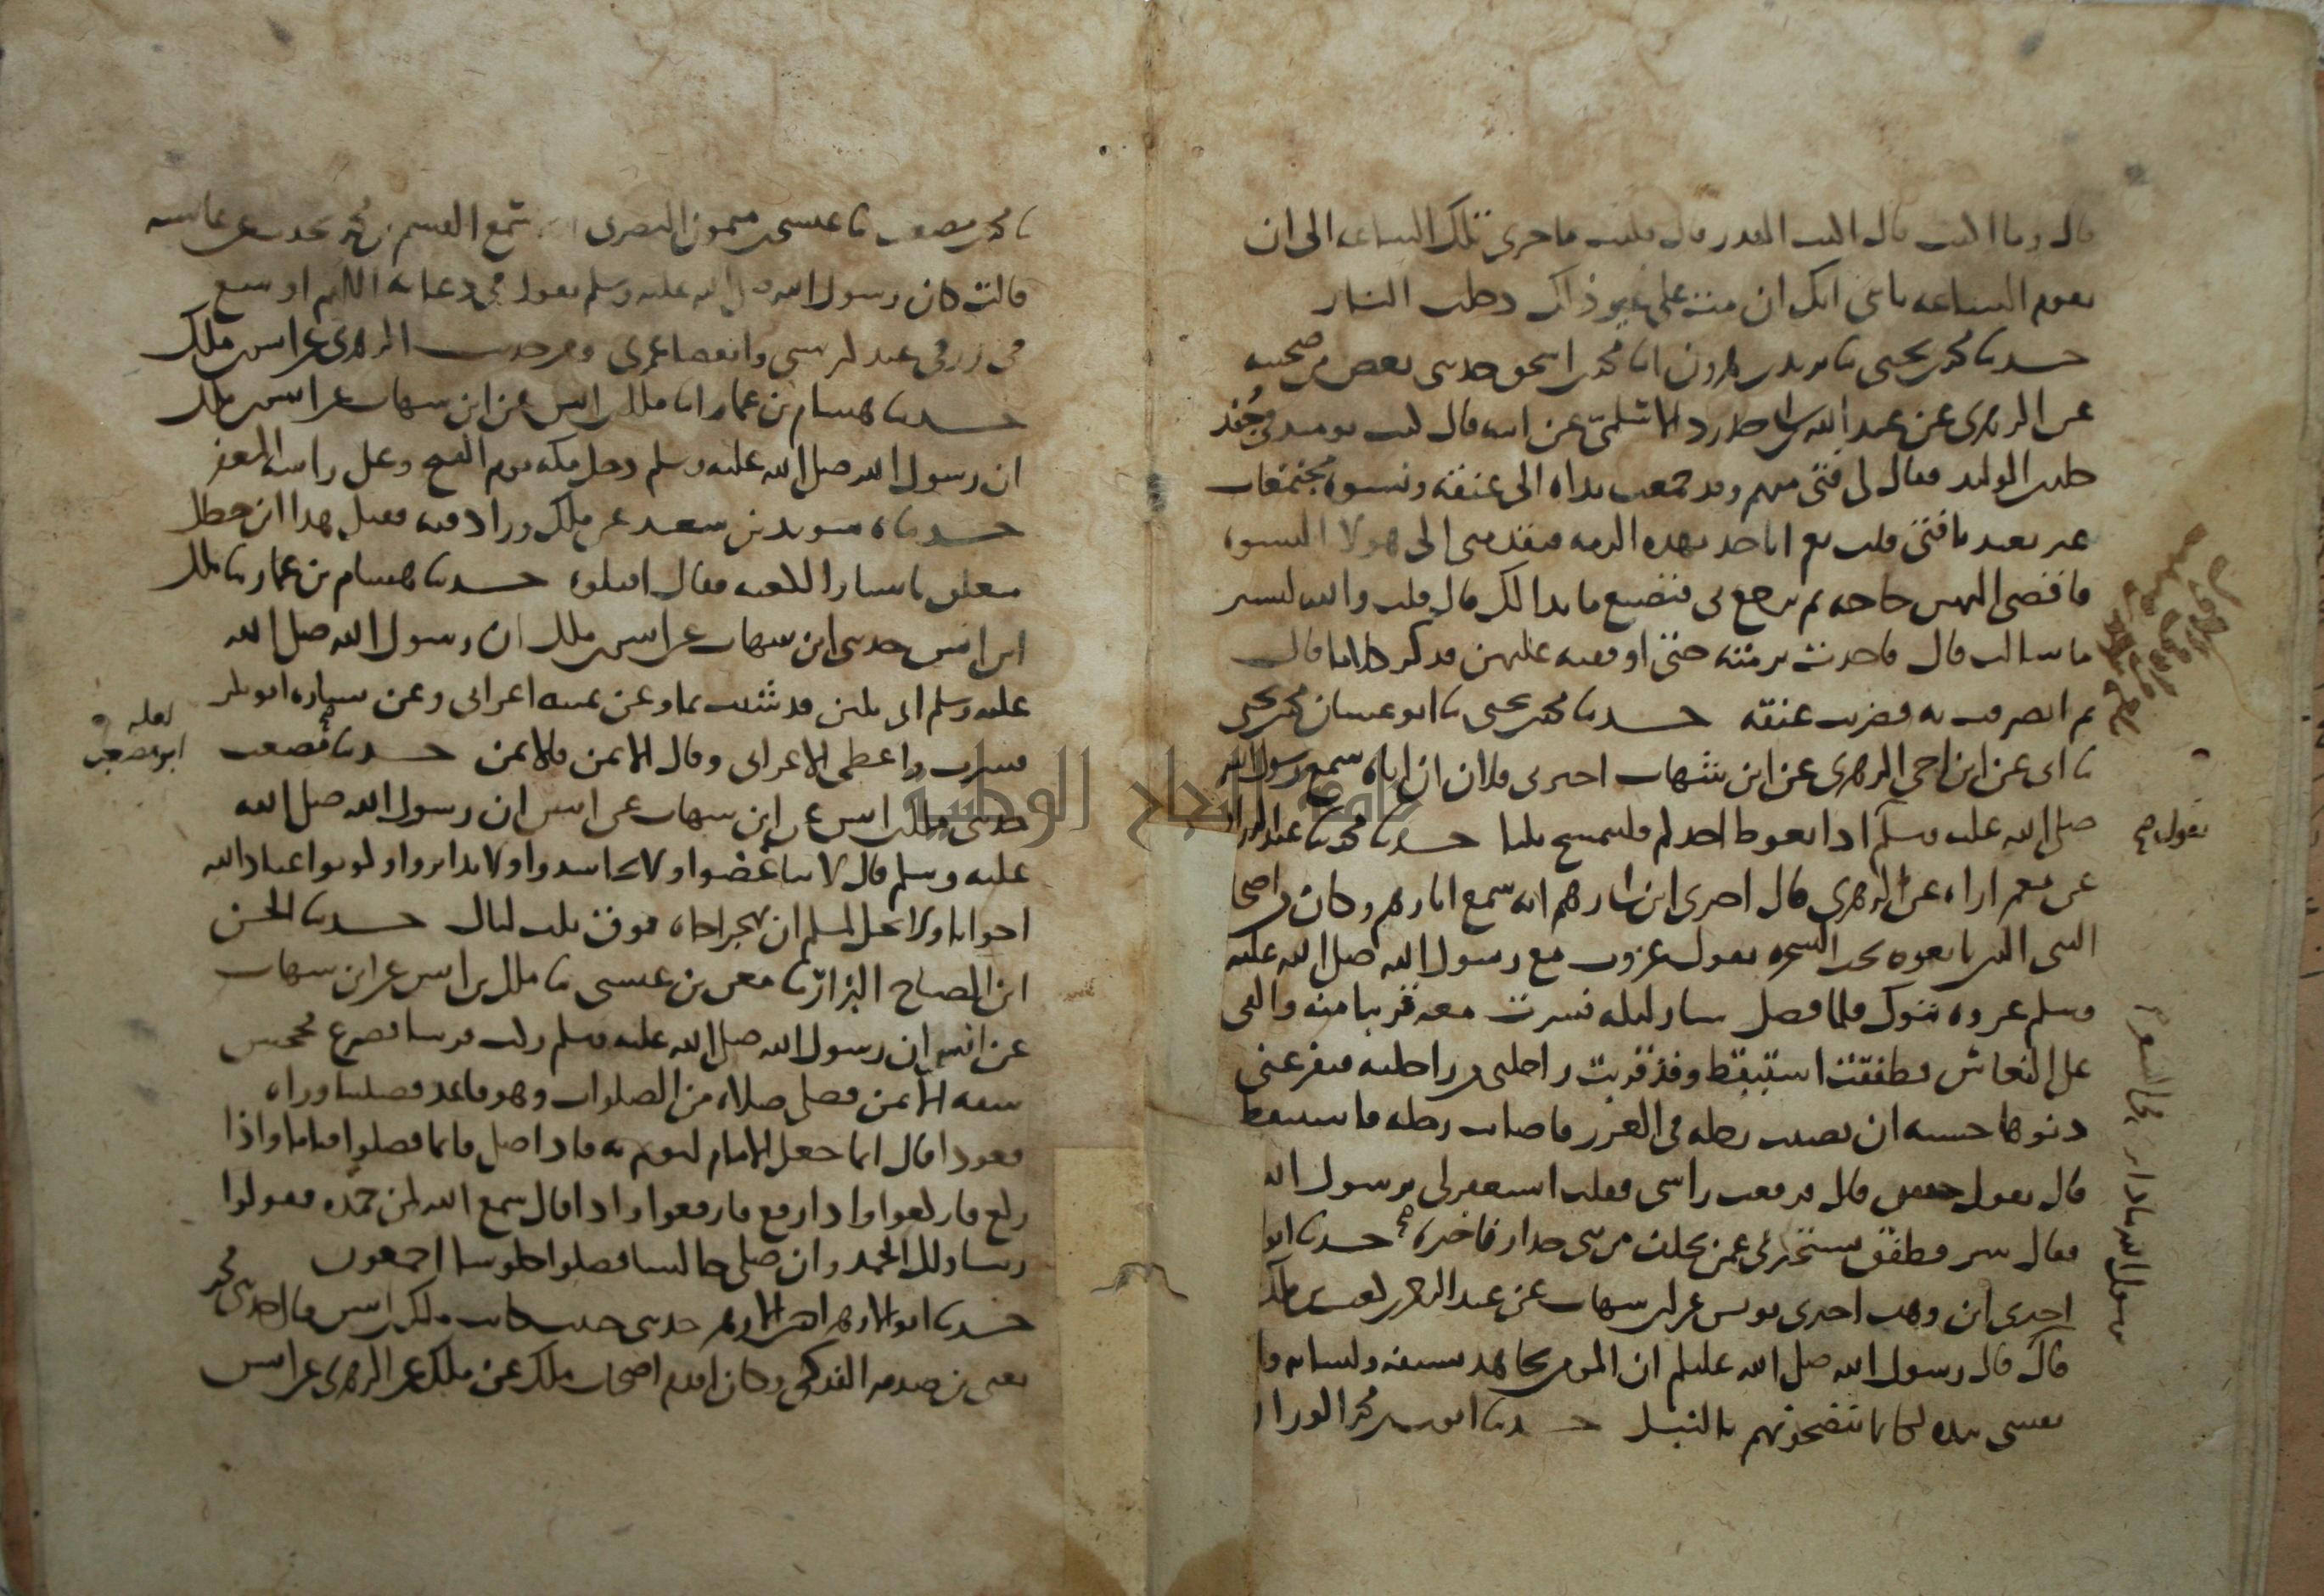 قال وما البيت قال البيت القدر قال فلبث ما جرى تلك الساعة الى ان
تقوم الساعة يا بني انك ان مت على غير ذلك دخلت النار
حدثنا محمد بن يحيى نا يزيد بن هرون انا محمد بن اسحق حدثني بعض من صحبه
عن الزهري عن عبد الله بن ابي حدرد الاسلمي عن ابيه قال كنت يومئذ في جند
خلد بن الوليد فقال لي فتى منهم وقد جمعت يداه الى عنقه ونسوة مجتمعات
غير بعيد يا فتى قلت نعم اآخذ بهذه الرمة فتقدمني الى هولا النسوة
فاقضي اليهن حاجة ثم ترجع بي فتصنع ما بدا لك قال قلت والله ليسير
ما سالت قال فاخذت برمته حتى اوقفته عليهن فذكر كلاما قال
ثم انصرفت به فضربت عنقه حدثنا محمد بن يحيى نا ابو غسان محمد بن يحيى
نا ابي عن ابن اخي الزهري عن ابن شهاب اخبرني فلان ان اباه سمع رسول الله
صلى الله عليه وسلم اذا تغوط احدكم فليتمسح ثلثا حدثنا محمد نا عبد الرزاق
عن معمر اراه عن الزهري قال اخبرني ابن اخي ابي رهم انه سمع ابا رهم وكان من اصحاب
النبي الذين بايعوه تحت الشجرة يقول غزوت مع رسول الله صلى الله عليه
وسلم غزوة تبوك فلما فصل سار ليلة فسرت معه قريبا منه والقي
علي النعاس فطفقت استيقظ وقد قربت راحلتي من راحلته فيفزعني
دنوها خشية ان تصيب رجله في الغرز فاصاب رجله فاستيقظ
قال يقول حس قال فرفعت راسي فقلت استغفر لي يرسول الله
فقال سر وطفق يستخبرني عمن تخلف من بني غفار فاخبره حدثنا ابو
اخبرني ابن وهب اخبرني يونس عن ابن شهاب عن عبد الرحمن بن كعب بن ملك
قال قال رسول الله صلى الله عليه وسلم ان المومن يجاهد بسيفه ولسانه وا
نفسي بيده لكانما تنضحونهم بالنبل حدثنا ايوب بن محمد الوزان
يقول صح
يرسول الله ماذا ترى في الشعر
نا محمد بن مصعب نا عيسى بن ميمون البصري سمع القسم بن محمد يحدث عن عائشة
قالت كان رسول الله صلى الله عليه وسلم يقول في دعائه اللهم اوسع
في رزقي عند كبر سني وانقضا عمري ومن حديث الزهري عن انس بن ملك
حدثنا هشام بن عمار انا ملك بن انس عن ابن شهاب عن انس بن ملك
ان رسول الله صلى الله عليه وسلم دخل مكة يوم الفتح وعلى راسه المغفر
حدثناه سويد بن سعيد عن ملك وزاد فيه فقيل هذا ابن خطل
متعلق باستار الكعبة فقال اقتلوه حدثنا هشام بن عمار نا ملك
ابن انس حدثني ابن شهاب عن انس بن ملك ان رسول الله صلى الله
عليه وسلم اتي بلبن قد شيب بما وعن يمينه اعرابي وعن يساره ابو بكر
فشرب واعطى الاعرابي وقال الايمن فالايمن حدثنا مصعب
حدثني ملك بن انس عن ابن شهاب عن انس ان رسول الله صلى الله
عليه وسلم قال لا تباغضوا ولا تحاسدوا ولا تدابروا وكونوا عباد الله
اخوانا ولا يحل لمسلم ان يهجر اخاه فوق ثلث ليال حدثنا الحسن
ابن الصباح البزار نا معن بن عيسى نا ملك بن انس عن ابن شهاب
عن انس ان رسول الله صلى الله عليه وسلم ركب فرسا فصرع فجحش
شقه الايمن فصلى صلاة من الصلوات وهو قاعد فصلينا وراه
قعودا قال انما جعل الامام ليوتم به فاذا صلى قائما فصلوا قياما واذا
ركع فاركعوا واذا رفع فارفعوا واذا قال سمع الله لمن حمده فقولوا
ربنا ولك الحمد وان صلى جالسا فصلوا جلوسا اجمعون
حدثنا ابو الازهر احمد بن الازهر حدثني حبيب كاتب ملك بن انس قال حدثني محمد
يعني بن صدقة الفدكي وكان اقدم اصحاب ملك عن ملك عن الزهري عن انس
لعله
ابو مصعب
جامعة النجاح الوطنية